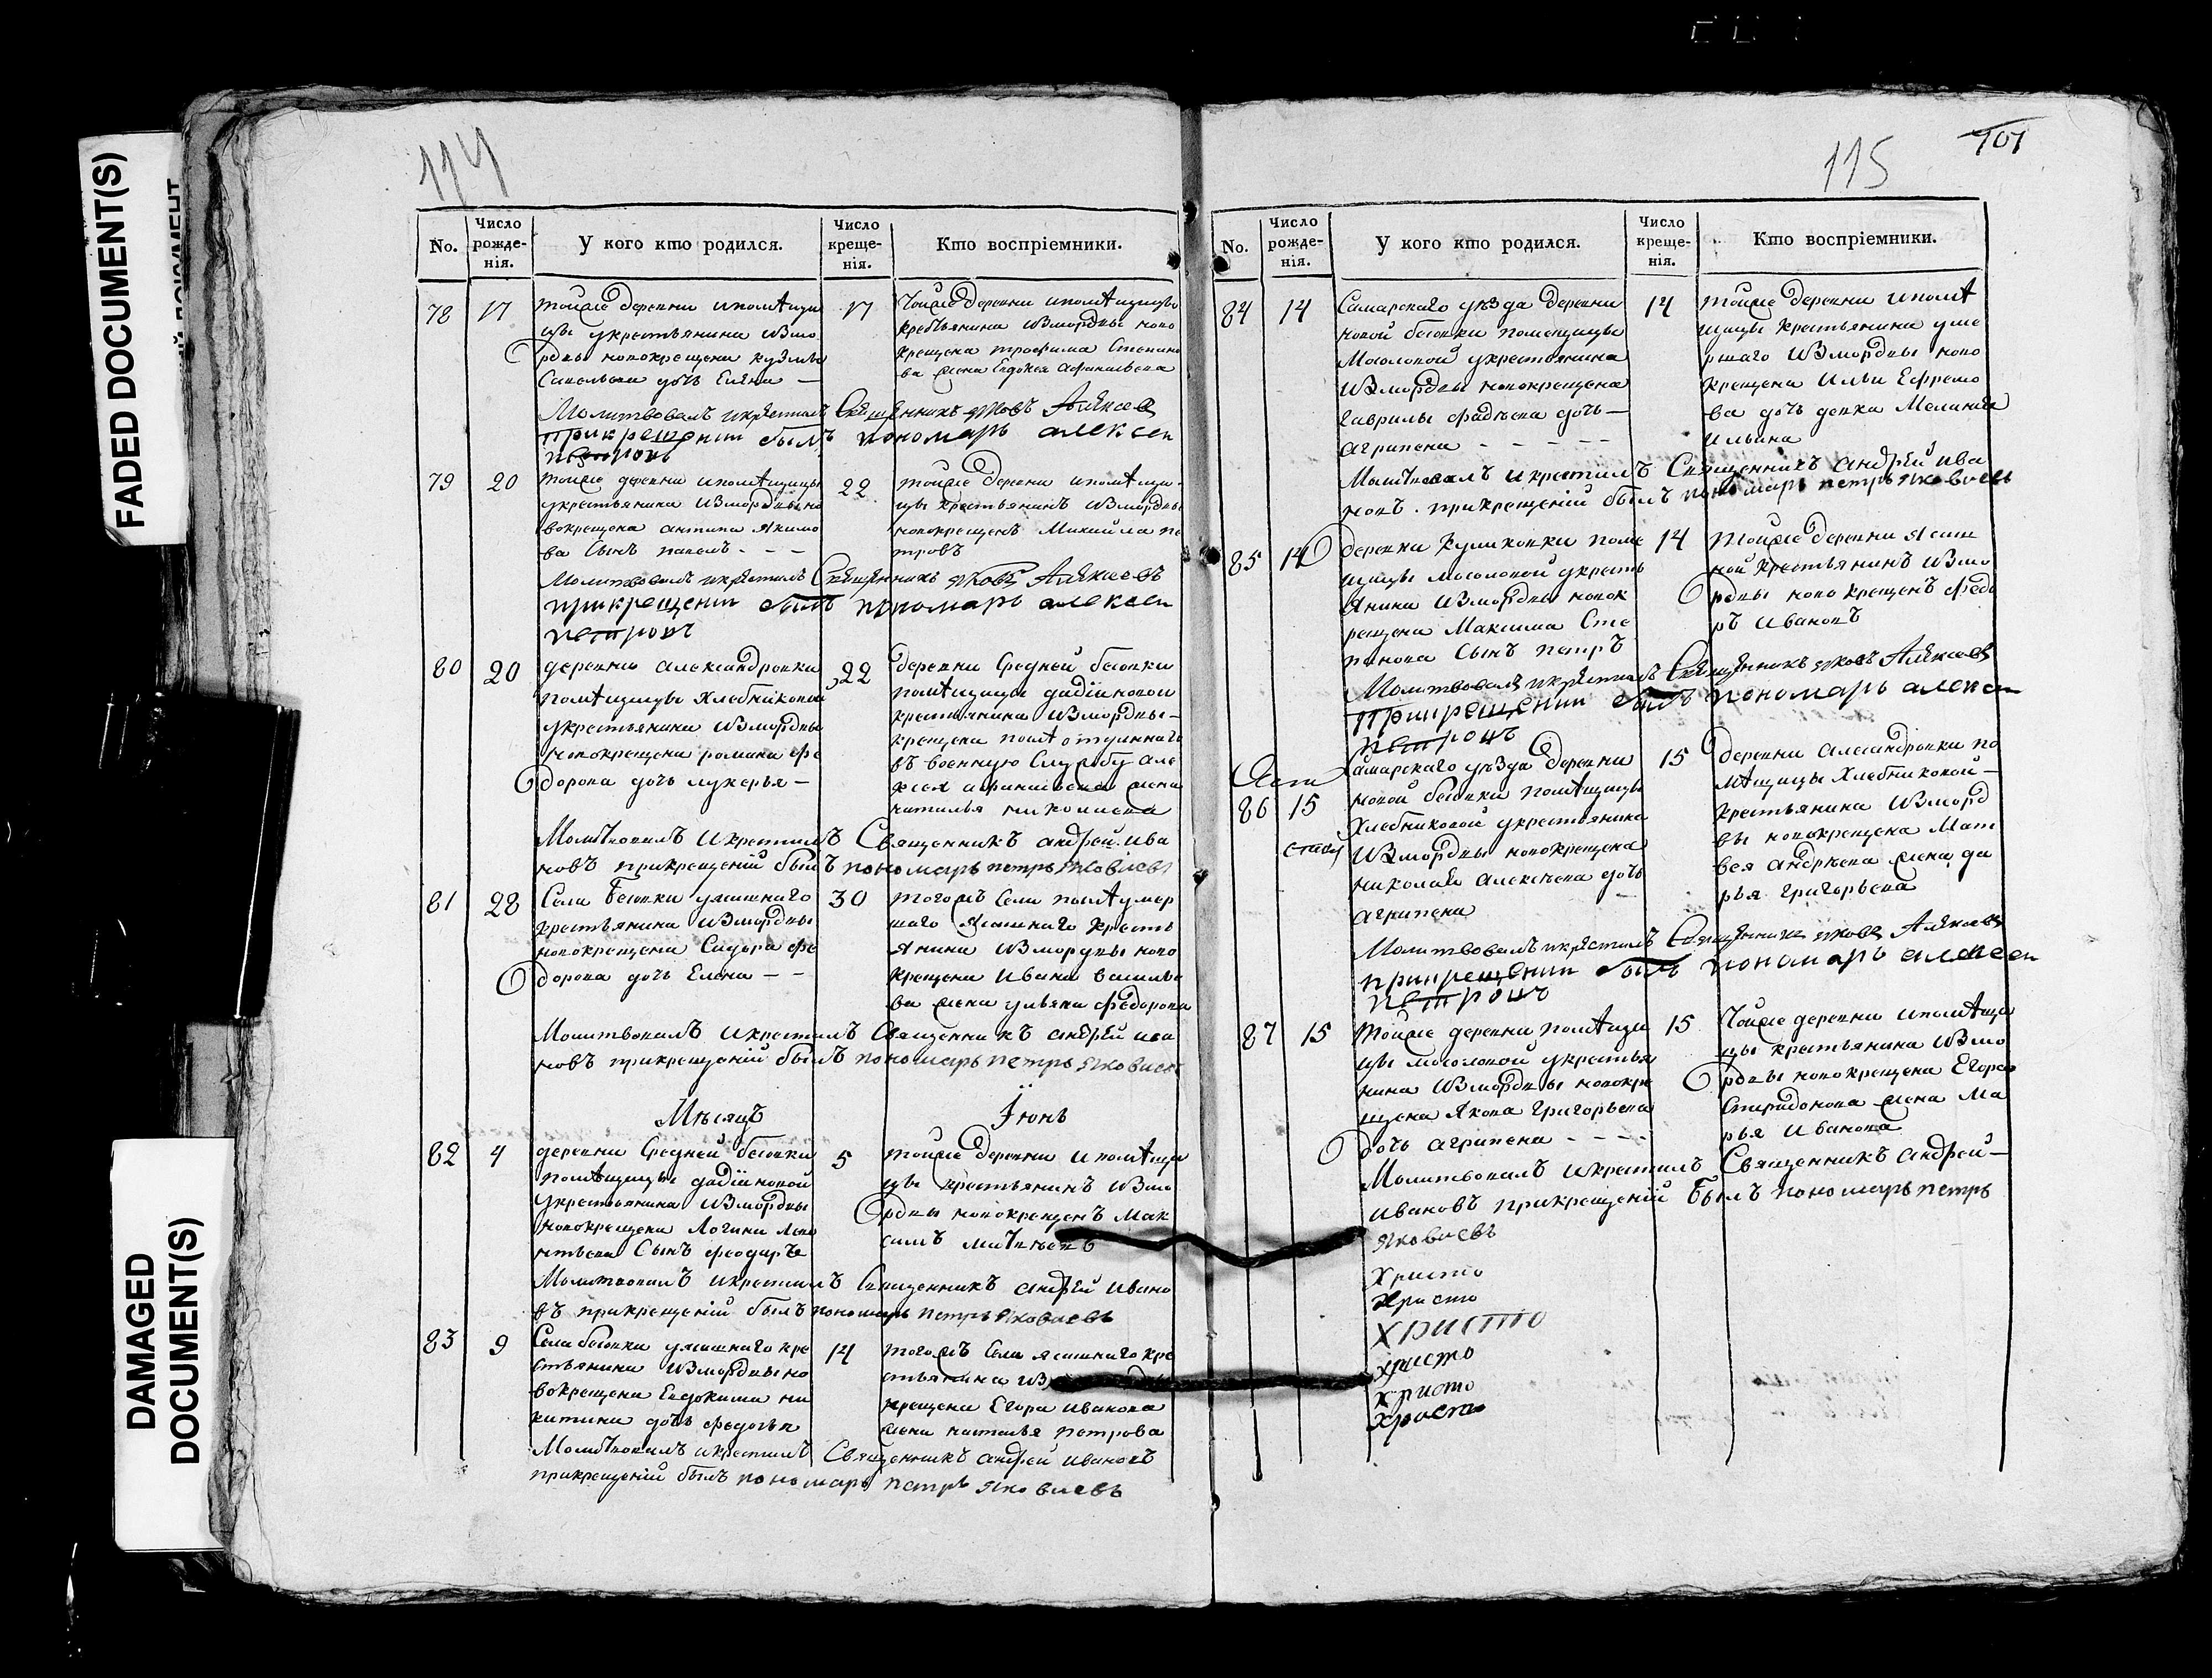 FADED DOCUMENT(S)
DAMAGED
DOCUMENT(S)
114
No.
Число
рожде-
нія.
У кого кто родился.
Число
креще-
нія.
Кто воспріемники.
78
17
тойже деревни ипомѣщи
цы укрестьянина изъмо
рдвы новокрещена кузмы
Савельева дочь Елена —
17
Тойже деревни ипомѣщицы
крестьянина измордвы ново
крещена трофима Степано
ва жена Евдокея афанасьева
Молитвовалъ икрестилъ Священникъ яковъ Алексеев
прикрещении былъ пономарь алексеи
петровъ
79
20
тойже деревни ипомѣщицы
укрестьянина измордвы но
вокрещена антипа якимо
ва Сынъ павелъ - - -
22
тойже деревни ипомѣщи-
цы крестьянинъ измордвы
новокрещенъ Михаила пе
тровъ
Молитвовалъ икрестилъ Священникъ яковъ Алексеевъ
прикрещении былъ пономарь алексеи
петровъ
80
20
деревни александровки
помѣщицы Хлебниковой
укрестьянина измордвы
новокрещена романа фе
дорова дочь лукерья —
22
деревни Средней бесовки
помѣщицы дадїановой
крестьянина измордвы-
крещена отданнаго
въ военную Службу але
ксея афанасьева жена
наталья николаева
Молитвовалъ икрестилъ Священникъ андрей ива
новъ прикрещенїй былъ пономарь петръ яковлевъ
81
28
Села Бесовки ясашнаго
крестьянина измордвы
новокрещена Сидора фе
дорова дочь Елена - -
30
тогожъ Села умер
шаго Ясашнаго кресть
янина измордвы ново
крещена ивана василье
ва жена ульяна федорова
Молитвовалъ икрестилъ Священникъ андрей ива
новъ прикрещенїй былъ пономарь петръ яковлевъ
Мѣсяцъ Їюнь
82
4
деревни Средней бесовки
помѣщицы дадїановой
укрестьянина измордвы
новокрещена Логина лео
нтьева Сынъ феодоръ
5
тойже деревни ипомѣщи
цы крестьянинъ измо
рдвы новокрещенъ Мак
симъ матвѣевъ
Молитвовалъ икрестилъ Священникъ андрей ивано
въ прикрещенїй былъ пономарь петръ яковлевъ
83
9
Села бесовки ясашнаго кре
стьянина измордвы но
вокрещена Евдокима ни
китина дочь федосья
14
тогожъ Села ясашнаго кре
стьянина из
крещена Егора иванова
жена наталья петрова
Молитвовалъ икрестилъ Священникъ андрей ивановъ
прикрещенїй былъ пономарь петръ яковлевъ
115
101
No.
Число
рожде-
нія.
У кого кто родился.
Число
креще-
нія.
Кто воспріемники.
84
14
Самарскаго уѣзда деревни
новой бесовки помещицы
Мосоловой укрестьянина
измордвы новокрещена
гаврилы фадѣева дочь —
агрипена - - - - -
14
тойже деревни ипомѣ
щицы крестьянина уме
ршаго измордвы ново
крещена ильи Ефремо
ва дочь девка Меланья
ильина
Молитвовалъ икрестилъ Священникъ андрей ива
новъ. прикрещенїй былъ пономарь петръ яковлевъ
85
14
деревни Куликовки поме
щицы мосоловой укресть
янина измордвы новок
рещена Максима Сте
панова Сынъ петръ
14
тойже деревни
крестьянинъ измо
рдвы ново крещенъ федо
ръ ивановъ
Молитвовалъ икрестилъ Священникъ яковъ Алексеевъ
прикрещении былъ пономарь алексеи
петровъ
86
15
Самарскаго уѣзда деревни
новой бесовки помѣщицы
Хлебниковой укрестьянина
измордвы новокрещена
николая алексѣева дочь
агрипена
15
деревни александровки по
мѣщицы Хлебниковой —
крестьянина измордв
вы новокрещена Мат
вея андрѣева жена да
рья григорьева
Молитвовалъ икрестилъ Священникъ яковъ Алексеевъ
прикрещении былъ пономарь алексеи
петровъ
87
15
тойже деревни помѣщи
цы мосоловой укрестья
нина измордвы новокре
щена Якова григорьева
дочь агрипена - - - -
15
Тойже деревни ипомѣщи
цы крестьянина измо
рдвы новокрещена Егора
Спиридонова жена Ма
рья иванова
Молитвовалъ икрестилъ Священникъ андрей —
ивановъ прикрещенїй былъ пономарь петръ
яковлевъ
Христо
Христо
Христо
Христо
Христо
Христо